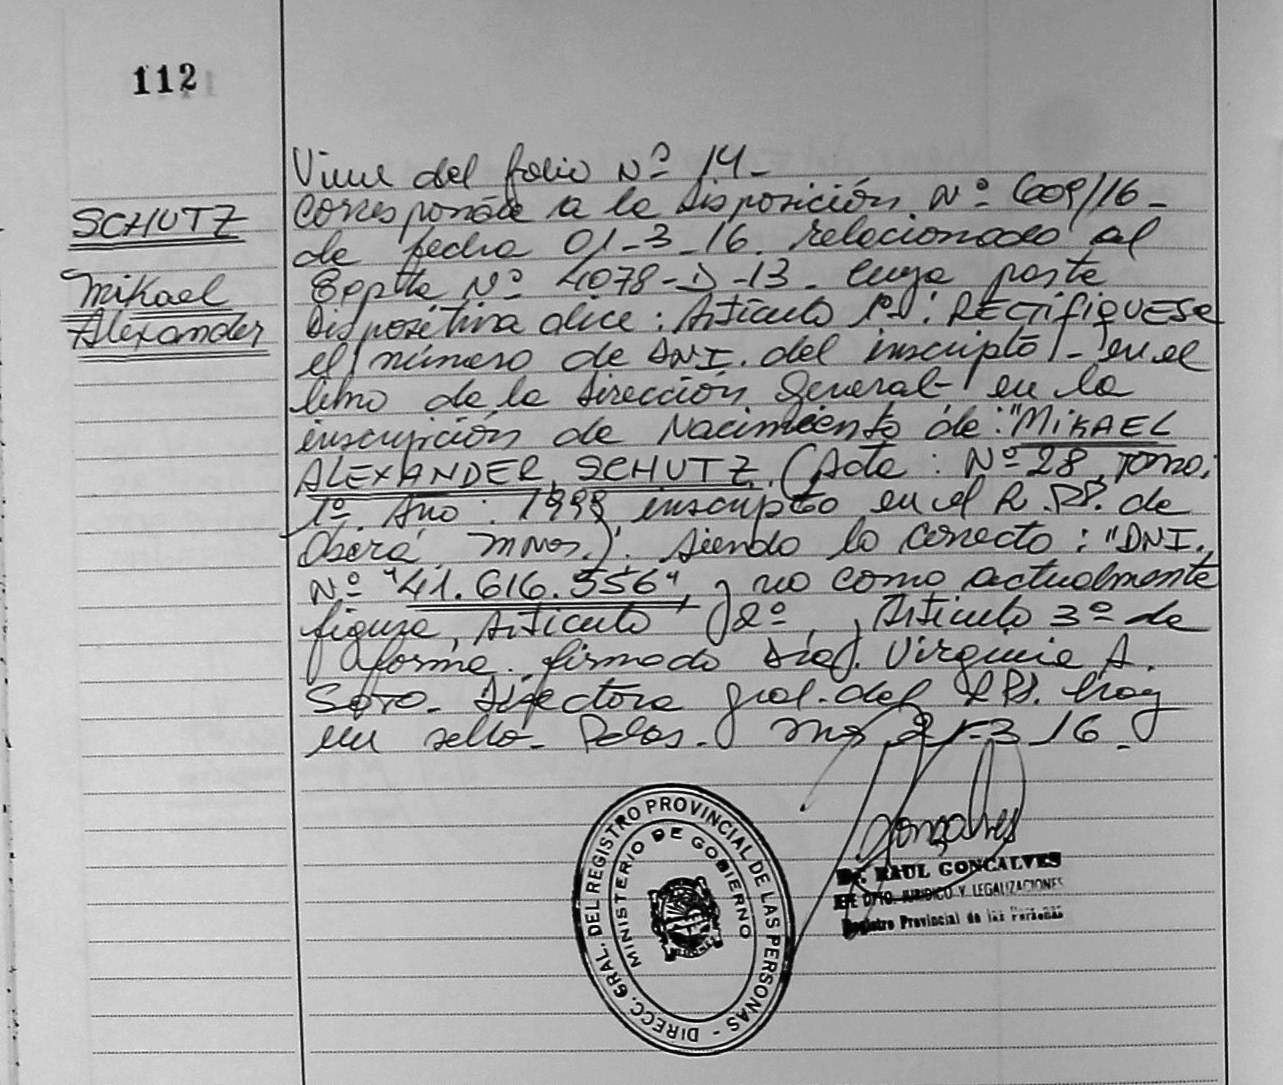 112
SCHUTZ
Mikael
Alexander
Viene del folio Nº 14-
Corresponde a la Disposición Nº 609/16-
de fecha 01-3-16. relacionado al
Expte Nº 4078-D-13. cuya parte
Dispositiva dice: Artículo 1º: RECTIFIQUESE
el número de DNI. del inscripto - en el
libro de la Dirección General - en la
inscripción de Nacimiento de: "MIKAEL
ALEXANDER SCHUTZ. (Acta: Nº 28, Tomo:
1º. Año: 1999, inscripto en el R.PP. de
Oberá Mnes.). siendo lo correcto: "DNI.
Nº "41.616.556", y no como actualmente
figura, Artículo 2º, Artículo 3º de
forma. firmado Virginia A.
Soto. Directora gral. del RPP. hay
un sello. Pdas. 21-3-16-
Gonçalves
Dr. RAUL GONCALVES
JEFE DPTO. JURIDICO Y LEGALIZACIONES
Registro Provincial de las Personas
DIRECC. GRAL. DEL REGISTRO PROVINCIAL DE LAS PERSONAS -
MINISTERIO DE GOBIERNO